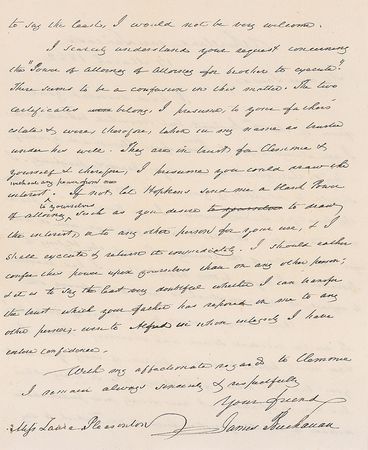 to say the least, I would not be very welcome.
I scarcely understand your request concerning
the "Power of Attorney of Attorney for brother to execute".
There seems to be a confusion in this matter. The two
certificates belong, I presume, to your father's
estate & were, therefore, taken in my name as trustee
under his will. They are in trust for Clemonia &
yourself & therefore, I presume you could draw the
without any power from me
interest. If not, let Hopkins send me a blank Power
to yourselves
of attorney, such as you desire to draw
the interest, or to any other person for your use, & I
shall execute & return it immediately. I should rather
confer this power upon yourselves than on any other person;
& it is to say the least very doubtful whether I can transfer
the trust which your father has reposed in me to any
other person; even to Alfred in whose integrity I have
entire confidence.
With my affectionate regards to Clemonia
I remain always sincerely & respectfully
Your friend
James Buchanan
Miss Laura Pleasonton